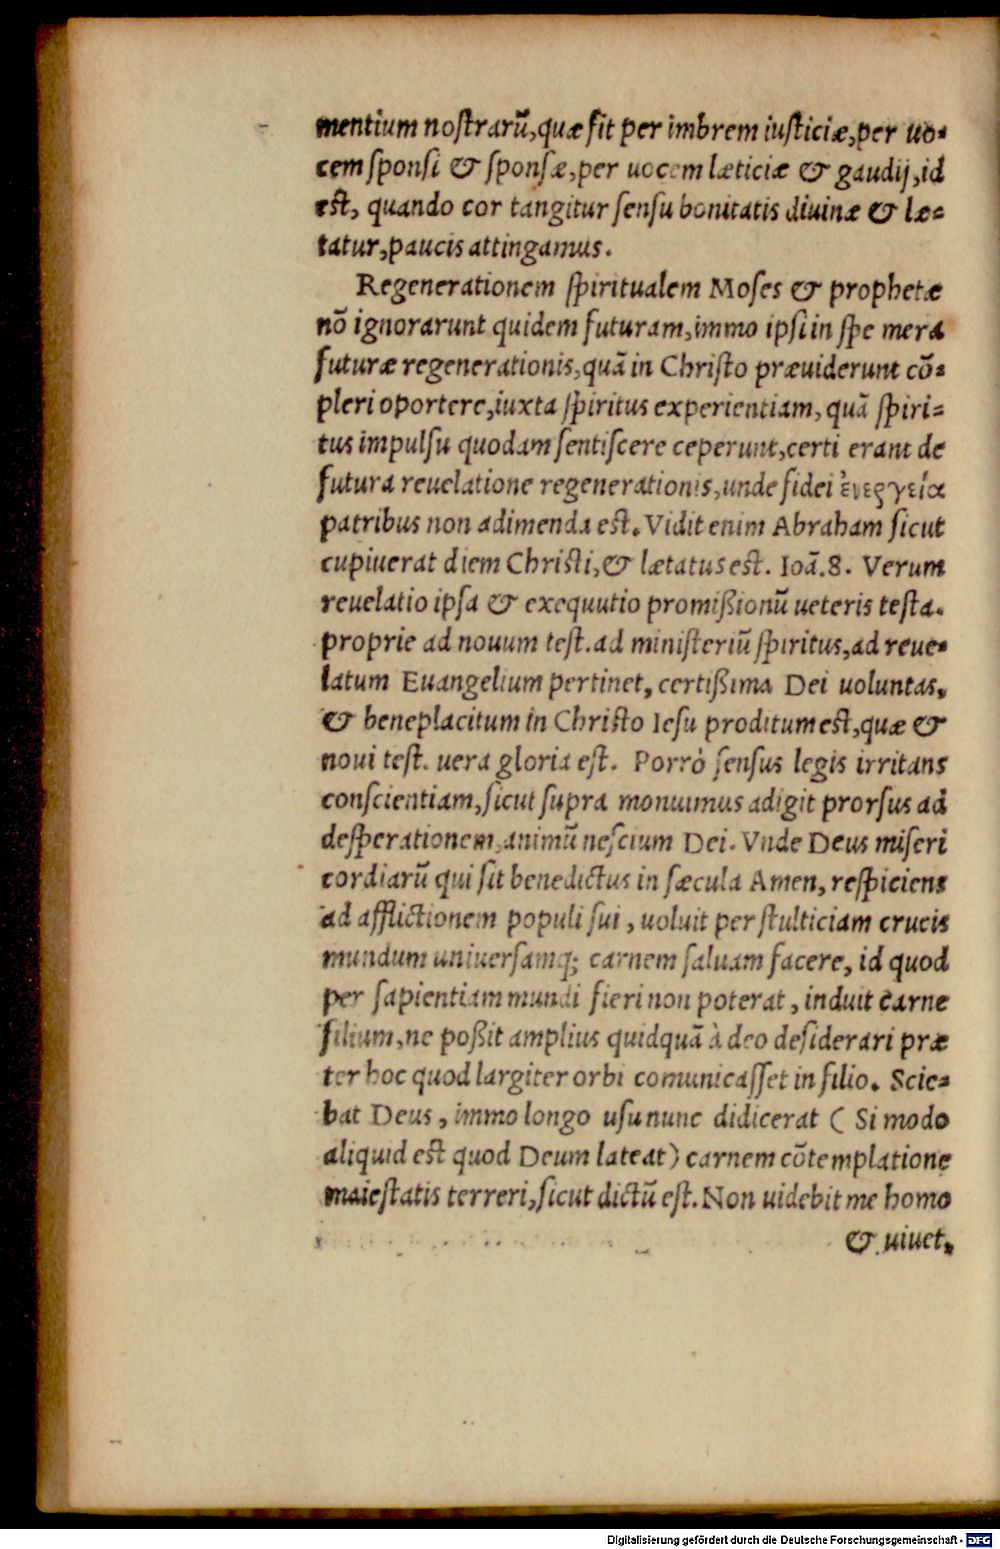 mentium nostrarū, quæ fit per imbrem iusticiæ, per uo-
cem sponsi & sponsæ, per uocem læticiæ & gaudij, id
est, quando cor tangitur sensu bonitatis diuinæ & læ-
tatur, paucis attingamus.
Regenerationem spiritualem Moses & prophetæ
nō ignorarunt quidem futuram, immo ipsi in spe mera
futuræ regenerationis, quā in Christo præuiderunt cō-
pleri oportere, iuxta spiritus experientiam, quā spiri-
tus impulsu quodam sentiscere ceperunt, certi erant de
futura reuelatione regenerationis, unde fidei ἐνεργεία
patribus non adimenda est. Vidit enim Abraham sicut
cupiuerat diem Christi, & lætatus est. Ioā. 8. Verum
reuelatio ipsa & exequutio promißionū ueteris testa.
proprie ad nouum test. ad ministeriū spiritus, ad reue-
latum Euangelium pertinet, certißima Dei uoluntas,
& beneplacitum in Christo Iesu proditum est, quæ &
noui test. uera gloria est. Porrò sensus legis irritans
conscientiam, sicut supra monuimus adigit prorsus ad
desperationem, animū nescium Dei. Vnde Deus miseri
cordiarū qui sit benedictus in sæcula Amen, respiciens
ad afflictionem populi sui, uoluit per stulticiam crucis
mundum uniuersamq; carnem saluam facere, id quod
per sapientiam mundi fieri non poterat, induit carne
filium, ne poßit amplius quidquā à deo desiderari præ
ter hoc quod largiter orbi comunicasset in filio. Scie-
bat Deus, immo longo usu nunc didicerat ( Si modo
aliquid est quod Deum lateat) carnem cōtemplatione
maiestatis terreri, sicut dictū est. Non uidebit me homo
& uiuet,
Digitalisierung gefördert durch die Deutsche Forschungsgemeinschaft - DFG